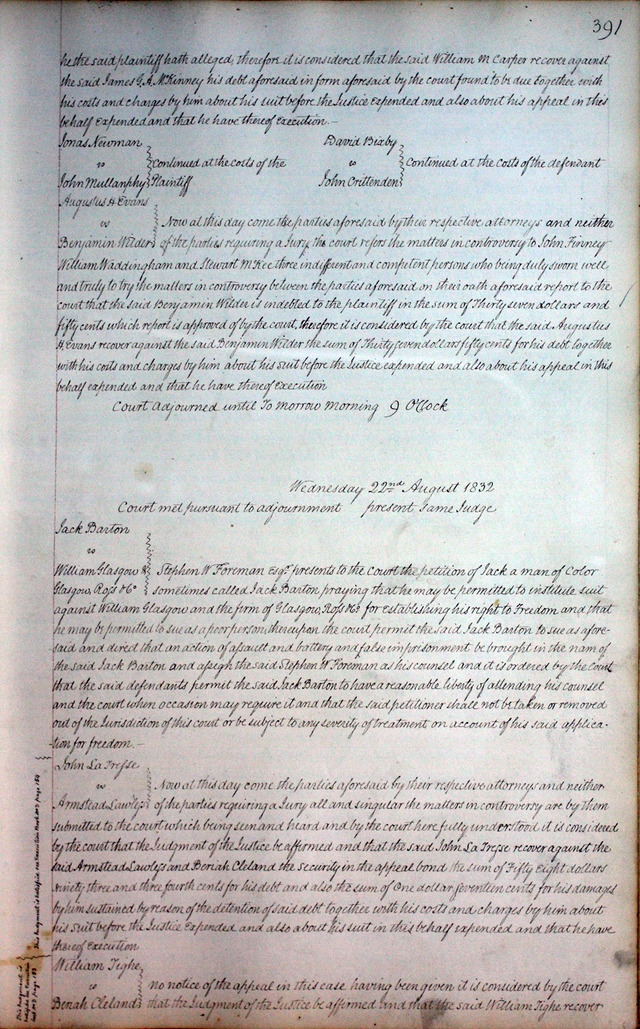 391
he the said plaintiff hath alleged, therefore it is considered that the said William M Carper recover against
the said James G. A. McKinney his debt aforesaid in form aforesaid by the court found to be due together with
his costs and charges by him about his suit before the Justice Expended and also about his appeal in this
behalf Expended and that he have thereof Execution. —
Jonas Newman
vs
John Mullanphy
Continued at the costs of the
Plaintiff
David Bixby
vs
John Crittenden
Continued at the costs of the defendant
Augustus H Evans
vs
Benjamin Wilder
Now at this day come the parties aforesaid by their respective attorneys and neither
of the parties requiring a Jury the court refer the matters in controversy to John Finney
William Waddingham and Stewart McKee three indifferent and competent persons who being duly sworn well
and truly to try the matters in controversy between the parties aforesaid on their oath aforesaid report to the
court that the said Benjamin Wilder is indebted to the plaintiff in the sum of Thirty seven dollars and
fifty cents which report is approved of by the court, therefore it is considered by the court that the said Augustus
H. Evans recover against the said Benjamin Wilder the sum of Thirty seven dollars fifty cents for his debt together
with his costs and charges by him about his suit before the Justice expended and also about his appeal in this
behalf expended and that he have thereof Execution
Court adjourned until To Morrow Morning 9 O'Clock
Wednesday 22nd August 1832
Court met pursuant to adjournment present same Judge
Jack Barton
vs
William Glasgow &
Glasgow, Ross & Co
Stephen W Foreman Esqr. presents to the Court the petition of Jack a man of Color
sometimes called Jack Barton praying that he may be permitted to institute suit
against William Glasgow and the firm of Glasgow, Ross & Co for establishing his right to Freedom and that
he may be permitted to sue as a poor person, thereupon the court permit the said Jack Barton to sue as afore-
said and dered that an action of assault and battery and false imprisonment be brought in the nam of
the said Jack Barton and assign the said Stephen W. Foreman as his counsel and it is ordered by the Court
that the said defendants permit the said Jack Barton to have a reasonable liberty of attending his counsel
and the court when occasion may require it and that the said petitioner shall not be taken or removed
out of the Jurisdiction of this court or be subject to any severity of treatment on account of his said applica-
tion for freedom. —
John La Fresse
vs
Armstead Lawless
Now at this day come the parties aforesaid by their respective attorneys and neither
of the parties requiring a Jury all and singular the matters in controversy are by them
submitted to the court which being seen and heard and by the court here fully understood it is considered
by the court that the Judgment of the Justice be affirmed and that the said John La Fresse recover against the
said Armstead Lawless and Beriah Cleland the Security in the appeal bond the sum of Fifty Eight dollars
ninety three and three fourth cents for his debt and also the sum of One dollar seventeen cents for his damages
by him sustained by reason of the detention of said debt together with his costs and charges by him about
his suit before the Justice Expended and also about his suit in this behalf expended and that he have
thereof Execution
William Tighe
vs
Beriah Cleland
no notice of the appeal in this case having been given it is considered by the court
that the Judgment of the Justice be affirmed and that the said William Tighe recover
This Judgment is satisfied